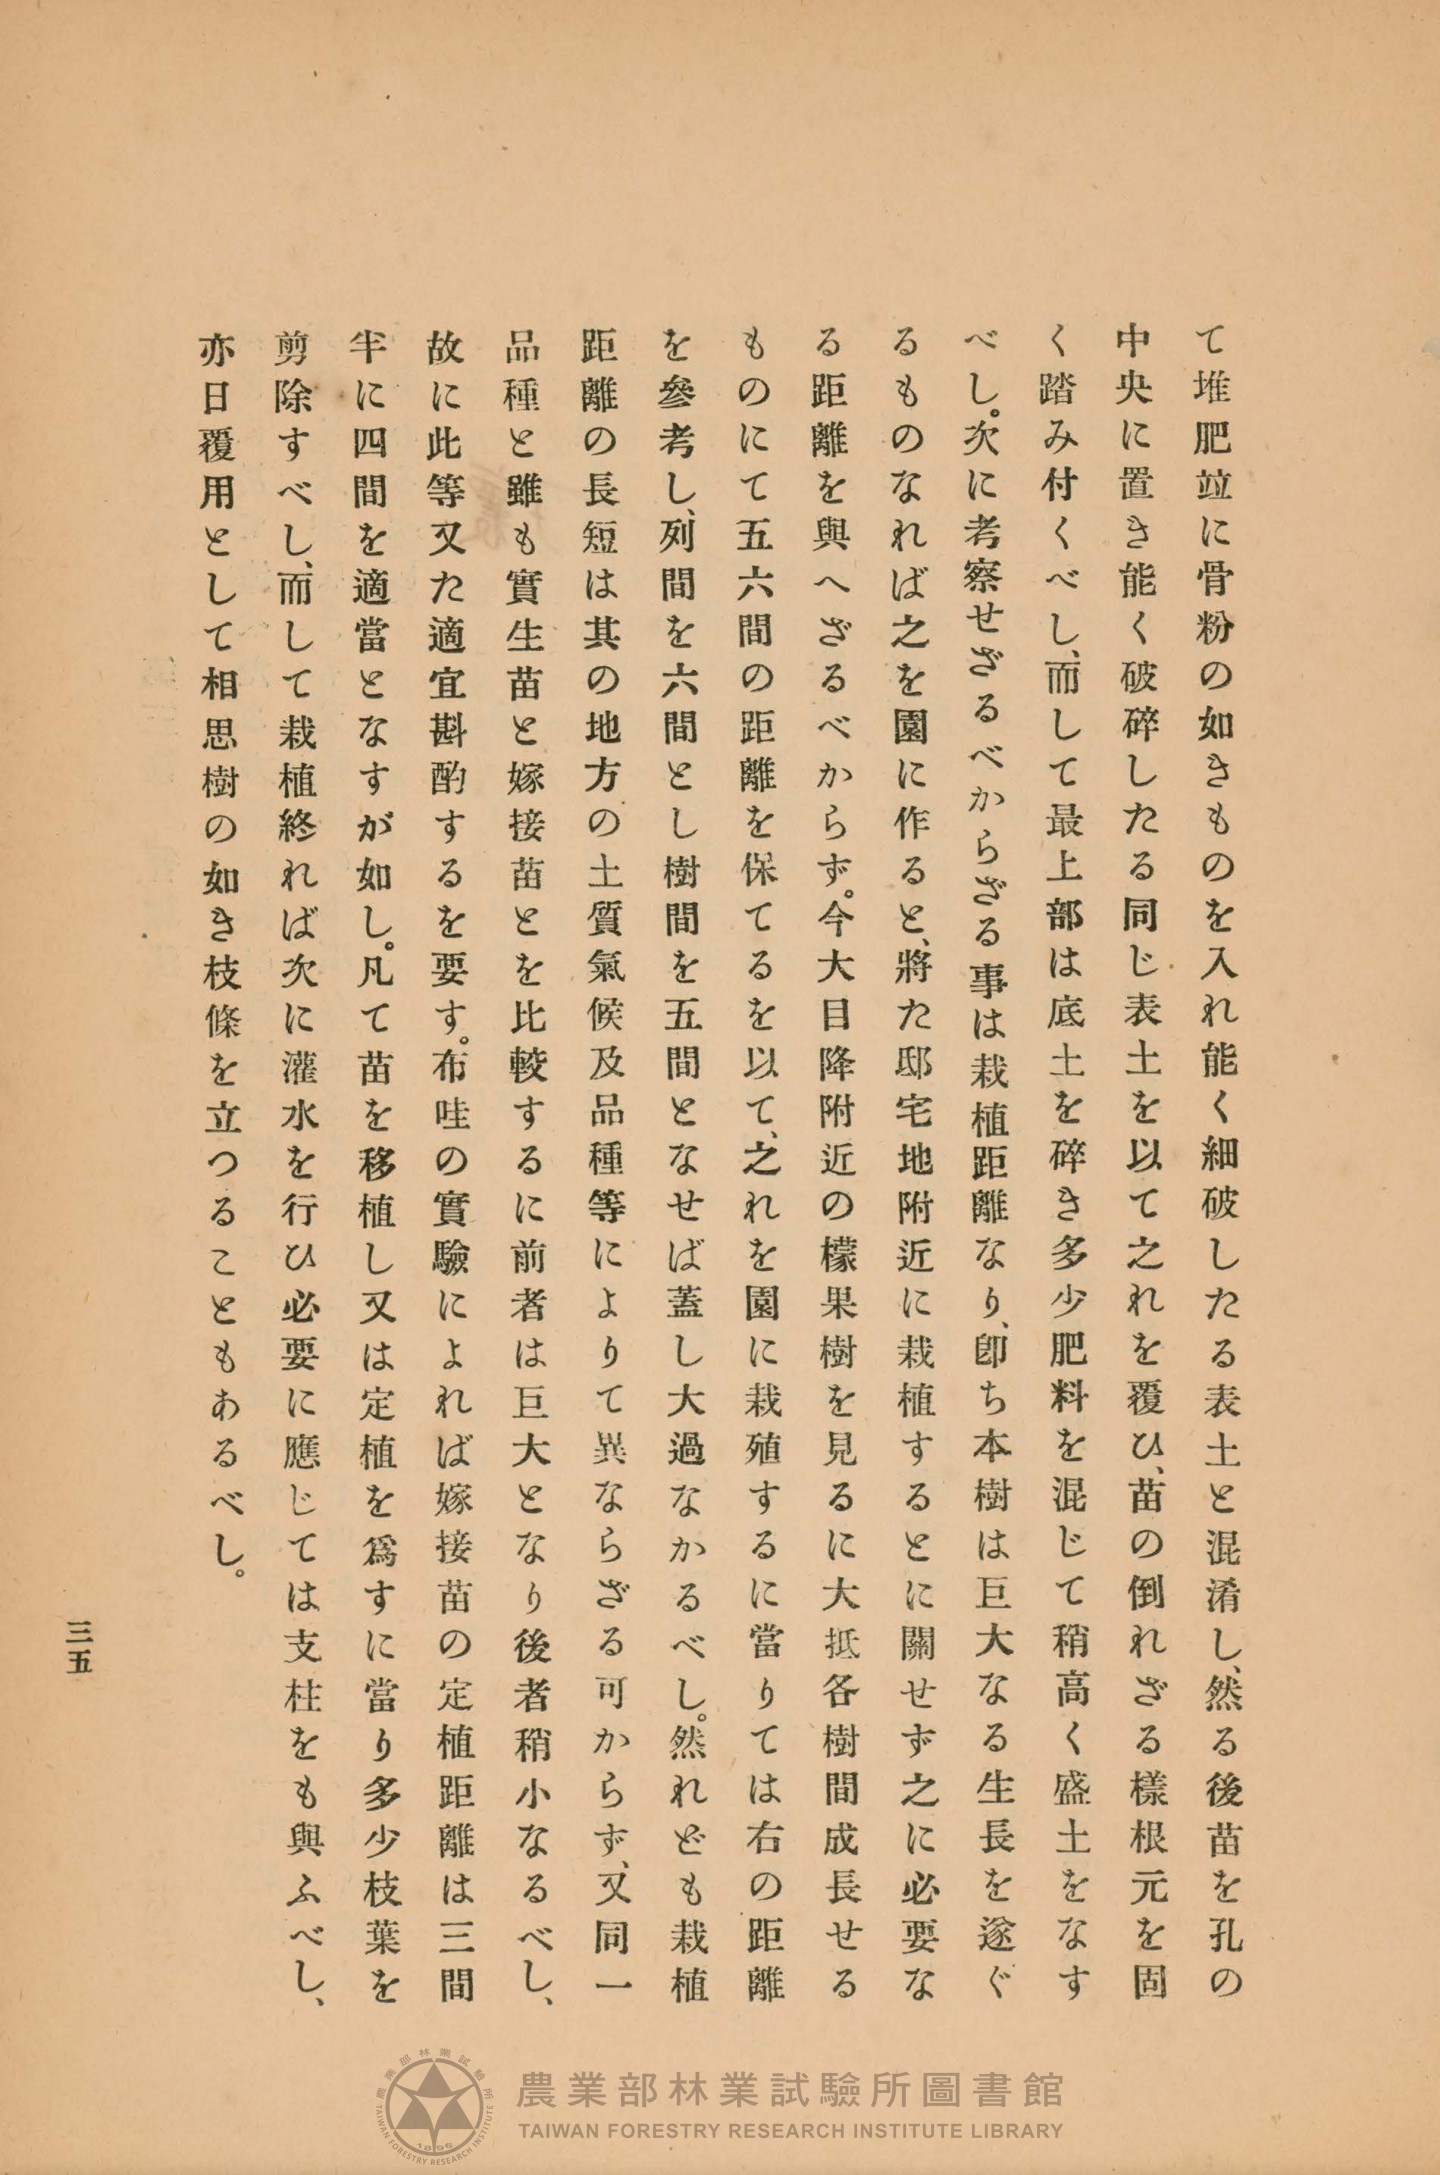 て堆肥竝に骨粉の如きものを入れ能く細破したる表土と混淆し、然る後苗を孔の
中央に置き能く破碎したる同じ表土を以て之れを覆ひ、苗の倒れざる樣根元を固
く踏み付くべし、而して最上部は底土を碎き多少肥料を混じて稍高く盛土をなす
べし。次に考察せざるべからざる事は栽植距離なり、卽ち本樹は巨大なる生長を遂ぐ
るものなれば之を園に作ると、將た邸宅地附近に栽植するとに關せず之に必要な
る距離を與へざるべからず。今大目降附近の檬果樹を見るに大抵各樹間成長せる
ものにて五六間の距離を保てるを以て、之れを園に栽殖するに當りては右の距離
を參考し、列間を六間とし樹間を五間となせば蓋し大過なかるべし。然れども栽植
距離の長短は其の地方の土質氣候及品種等によりて異ならざる可からず、又同一
品種と雖も實生苗と嫁接苗とを比較するに前者は巨大となり後者稍小なるべし、
故に此等又た適宜斟酌するを要す。布哇の實驗によれば嫁接苗の定植距離は三間
半に四間を適當となすが如し。凡て苗を移植し又は定植を爲すに當り多少枝葉を
剪除すべし、而して栽植終れば次に灌水を行ひ必要に應じては支柱をも與ふべし、
亦日覆用として相思樹の如き枝條を立つることもあるべし。
三五
農業部林業試驗所圖書館
TAIWAN FORESTRY RESEARCH INSTITUTE LIBRARY
農業部林業試驗所
TAIWAN FORESTRY RESEARCH INSTITUTE
1896